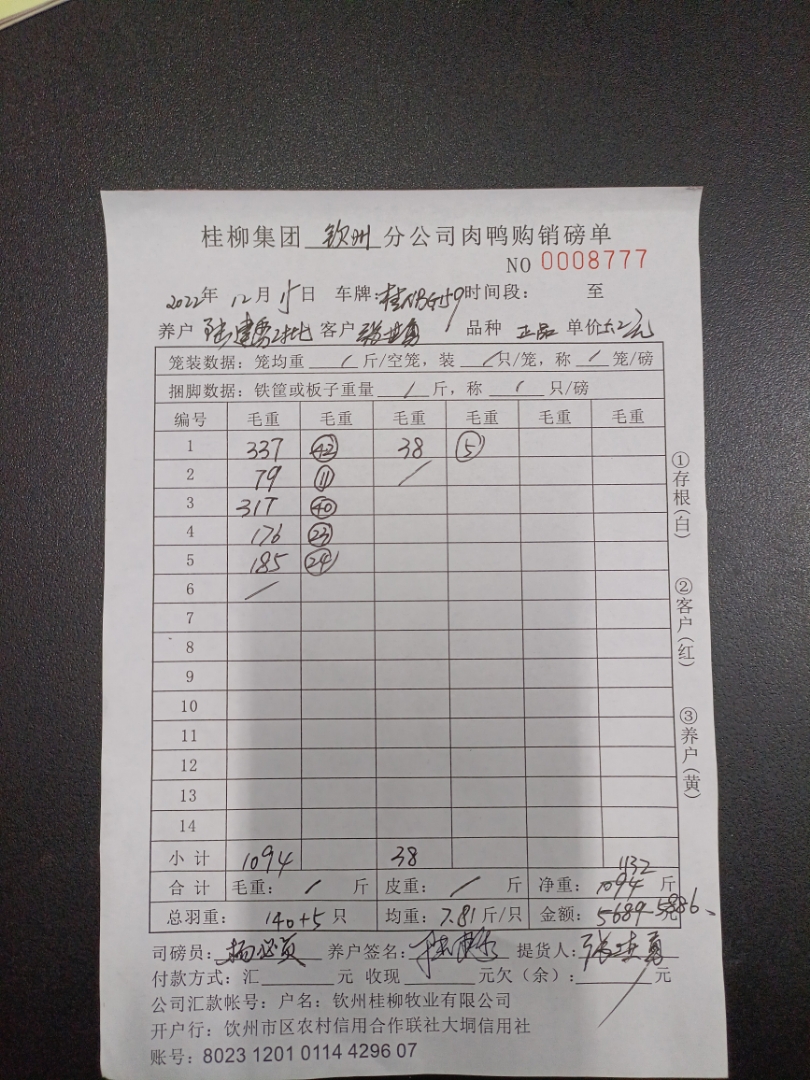 桂柳集团 钦州 分公司肉鸭购销磅单
NO 0008777
2022年 12月 15日 车牌: 时间段: 至
养户 客户 品种 正品 单价5.2元
笼装数据: 笼均重 / 斤/空笼, 装 / 只/笼, 称 / 笼/磅
捆脚数据: 铁筐或板子重量 / 斤, 称 / 只/磅
编号 毛重 毛重 毛重 毛重 毛重 毛重
1 337 42 38 5
2 79 11 /
3 317 40
4 176 23
5 185 24
6 /
7
8
9
10
11
12
13
14
小计 1094 38
1132
合计 毛重: / 斤 皮重: / 斤 净重: 1094 斤
总羽重: 140+5 只 均重: 7.81 斤/只 金额: 5689 5886
司磅员: 养户签名: 提货人:
付款方式: 汇 元 收现 元欠(余): 元
公司汇款帐号: 户名: 钦州桂柳牧业有限公司
开户行: 钦州市区农村信用合作联社大垌信用社
账号: 8023 1201 0114 4296 07
①存根(白)
②客户(红)
③养户(黄)